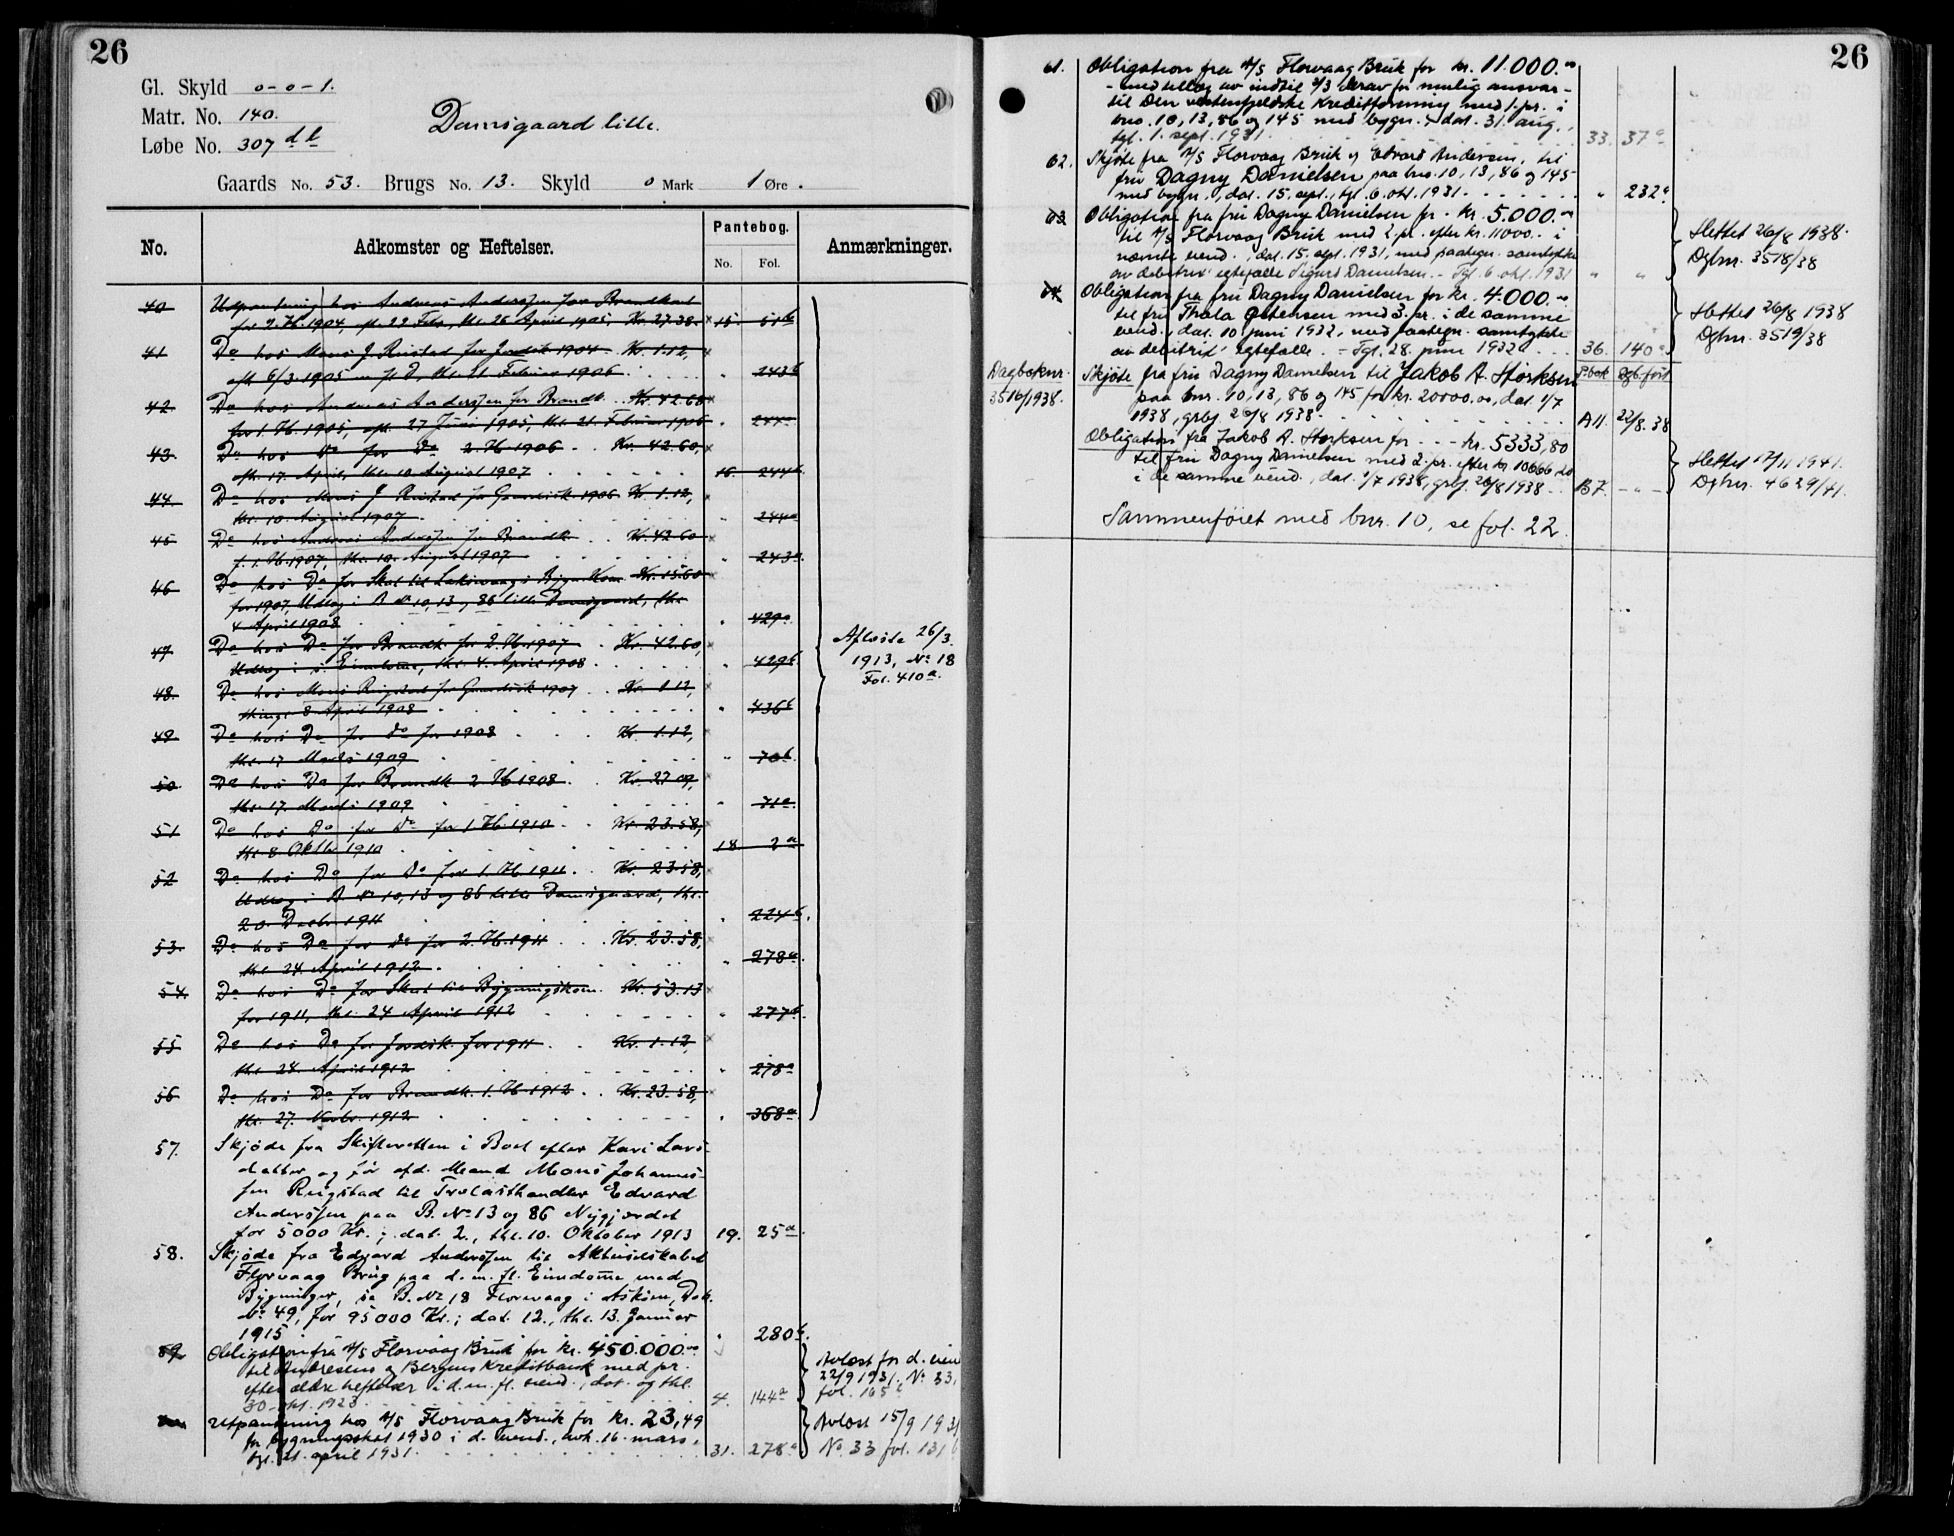 26
Gl. Skyld 0-0-1.
Matr. No. 140.
Løbe No. 307 dl
Damsgaard lille.
Gaards No. 53. Brugs No. 13. Skyld 0 Mark 1 Øre.
No. Adkomster og Heftelser. Pantebog. No. Fol. Anmærkninger.
40 Udpantning hos Andreas Anderssen for Brandkont
for 2. H. 1904, aft. 22 Febr, thl. 26 April 1905, Kr. 27.38. 15. 51b
41 Do hos Mons J. Ringstad for Jordsk. 1904. Kr. 1.12,
aft. 6/3 1905 m. fl. D, thl. 21 Februar 1906. 243b
42 Do hos Andreas Anderssen for Brandk. Kr. 42.60
for 1. H. 1905, aft. 27 Juni 1905, thl. 21. Februar 1906 " 244a
43 Do hos Do for Do 2. H. 1906 Kr. 42.60,
aft. 17. April, thl. 10 August 1907 16. 244b
44 Do hos Mons J. Ringstad for Grundsk. 1906 Kr. 1.12,
thl. 10. August 1907 " 244a
45 Do hos Andreas Anderssen for Brandk. Kr. 42.60
f. 1. H. 1907, thl. 10. August 1907 " 243a
46 Do hos Do for Skat til Laksevaags Bygn. Kom. Kr. 15.60
for 1907, Udlæg i B. No 10, 13 og 86 lille Damsgaard, thl.
4 April 1908 " 429a
47 Do hos Do for Brandk. for 2. H. 1907 Kr. 42.60,
Udlæg i s. Eiendomme, thl. 4. April 1908 " 429b
48. Do hos Mons Ringstad for Grundsk. 1907 Kr. 1.12,
thingl. 8 April 1908 " 436b
49 Do hos Do for do for 1908 Kr. 1.12,
thl. 17 Marts 1909 " 70b
50 Do hos Do for Brandk. 2. H. 1908 Kr. 27.09,
thl. 17. Marts 1909 " 71a
51 Do hos Do for Do for 1. H. 1910 Kr. 23.58,
thl. 8. Oktbr. 1910 18. 2a
52 Do hos Do for Do for 1. H. 1911 Kr. 23.58,
Udlæg i B. No 10, 13 og 86 lille Damsgaard, thl.
20. Decbr. 1911 " 224b
53. Do hos Do for do for 2. H. 1911 Kr. 23.58,
thl. 24. April 1912 " 278a
54 Do hos Do for Skat til Bygningskom. Kr. 53.13
for 1911, thl. 24 April 1912 " 277b
55 Do hos Do for Jordsk. for 1911 Kr. 1.12,
thl. 24. April 1912 " 278a
56 Do hos Do for Brandk. 1. H. 1912 Kr. 23.58,
thl. 27. Novbr. 1912 " 368a
Aflæste 26/3
1913, No 18
Fol. 410a.
57. Skjøde fra Skifteretten i Boet efter Kari Lars-
datter og før afd. Mand Mons Johannes-
sen Ringstad til Trælasthandler Edvard
Anderssen paa B. No 13 og 86 Nygjærdet
for 5000 Kr.; dat. 2., thl. 10. Oktober 1913 19. 25a
58. Skjøde fra Edvard Anderssen til Aktieselskabet
Florvaag Brug paa d. m. fl. Eiendomme med
Bygninger, se B. No 18 Florvaag i Askøen, Dok.
No 49, for 95000 Kr.; dat. 12., thl. 13. Januar
1915 " 280b
59. Obligation fra A/S Florvaag Bruk for kr. 450.000.00
til Andresens og Bergens Kreditbank med pr.
efter ældre heftelser i d. m. fl. eiend., dat. og thl.
30. okt. 1923 4. 144a
Avløst for d. eien
22/9 1931. No. 33,
fol. 165
Utpantning hos A/S Florvaag Bruk for kr. 23,49
for bygningsskat 1930 i d. eiend., avh. 16. mars,
tgl. 21. april 1931. 31. 278a
Avløst 15/9 1931
No. 33 fol. 131 b
26
61. Obligation fra A/S Florvaag Bruk for kr. 11.000.00
- med tillæg av indtil 2/3 derav for mulig ansvar -
til Den vestenfjeldske Kreditforening med 1. pr. i
bno. 10, 13, 86 og 145 med bygn., dat. 31. aug.,
tgl. 1. sept. 1931 33. 37a
62. Skjøte fra A/S Florvaag Bruk og Edvard Andersen, til
fru Dagny Danielsen paa bno. 10, 13, 86 og 145
med bygn., dat. 15. sept., tgl. 6. okt. 1931 " 232a
63. Obligation fra fru Dagny Danielsen for kr. 5.000.00
til A/S Florvaag Bruk med 2. pr. efter kr. 11000.- i
nævnte eiend., dat. 15. sept. 1931, med paategn. samtykke
av debitrix' egtefælle Sigurd Danielsen. - Tgl. 6. okt. 1931 " "
Slettet 26/8 1938.
Dgbnr. 3518/38
64. Obligation fra fru Dagny Danielsen for kr. 4.000.00
til fru Thala Ottensen med 3. pr. i de samme
eiend., dat. 10 juni 1932, med paategn. samtykke
av debitrix' egtefælle. - Tgl. 28. juni 1932 36. 140a
Slettet 26/8 1938
Dgbnr. 3519/38
Dagboknr.
3516/1938.
P.bok Dgb.ført
Skjøte fra fru Dagny Danielsen til Jakob A. Storksen
paa bnr. 10, 13, 86 og 145 for kr. 20000.00, dat. 1/7
1938, grbf. 26/8 1938. A11. 22/8.38
Obligation fra Jakob A. Storksen for kr. 5333,80
til fru Dagny Danielsen med 2. pr. efter kr. 10666,20
i de samme eiend., dat. 1/7 1938, grbf. 26/8 1938 B7. - " -
Slettet 17/11 1941.
Dgbnr. 4629/41.
Sammenføiet med bnr. 10, se fol. 22.